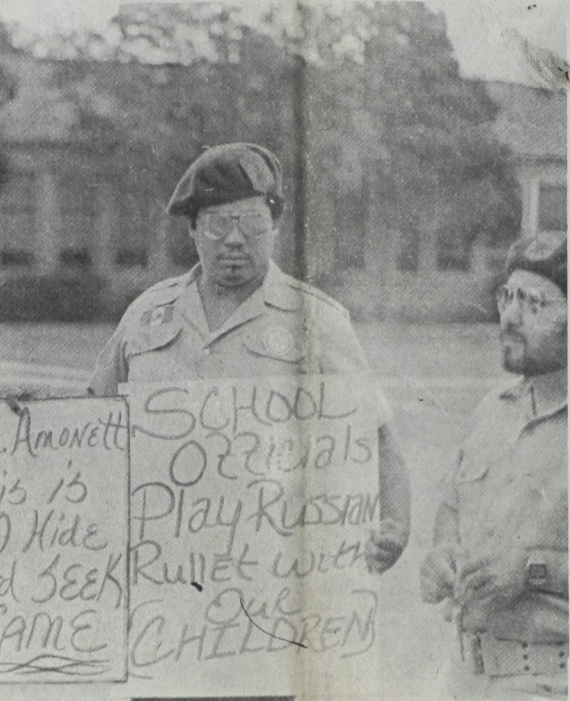 . Amonett
is is
Hide
d SEEK
GAME
SCHOOL
Officials
Play Russian
Rullet with
Our
(CHILDREN)